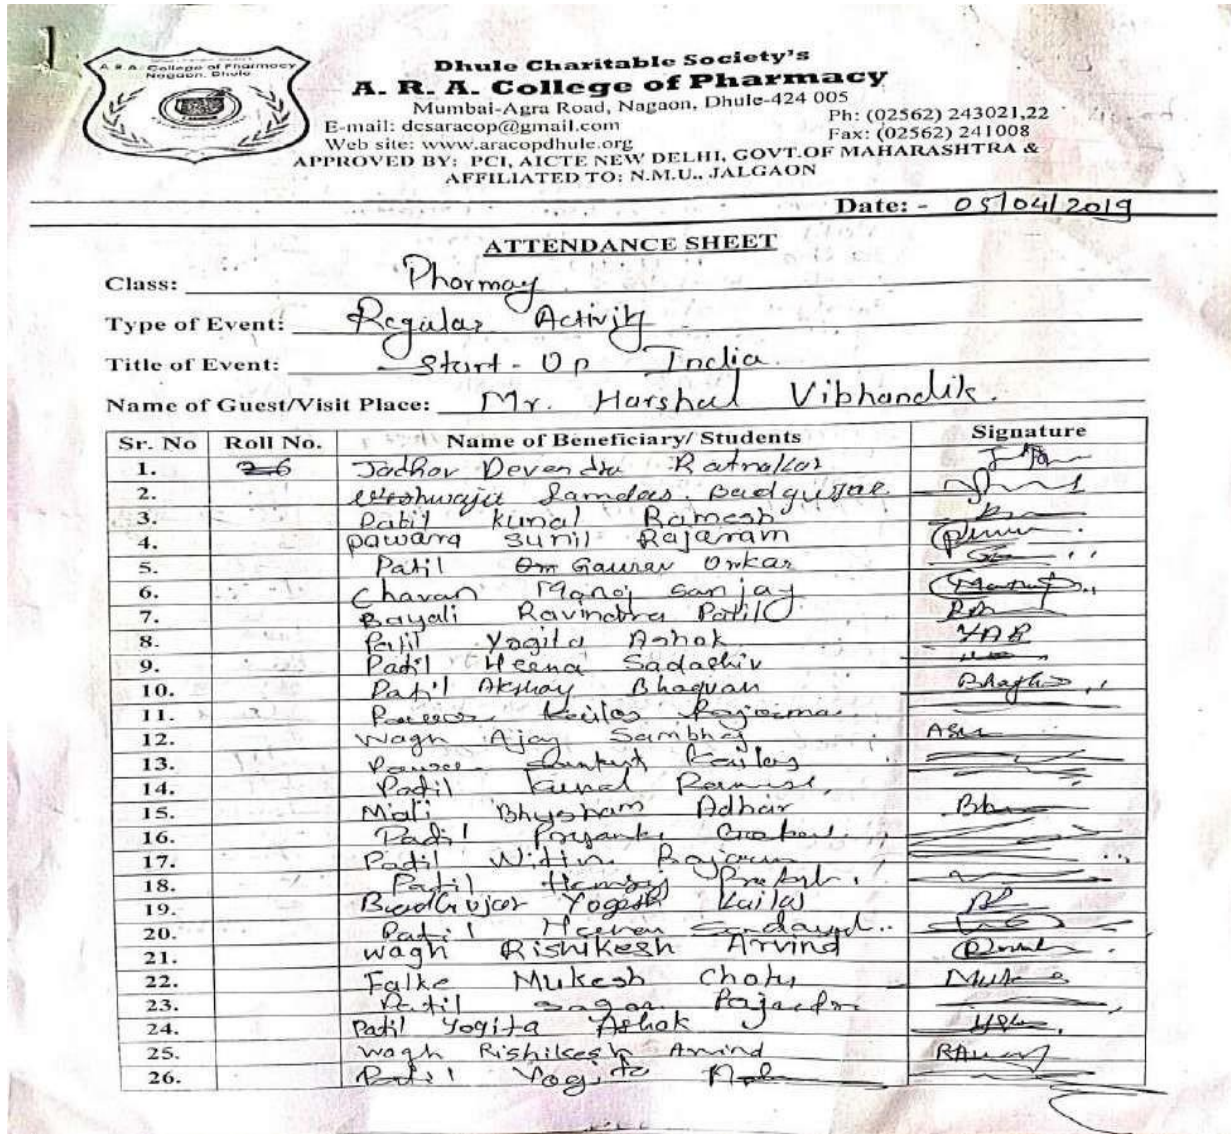 1
A R A. College of Pharmacy
Nagaon, Dhule
Dhule Charitable Society's
A. R. A. College of Pharmacy
Mumbai-Agra Road, Nagaon, Dhule-424 005
E-mail: dcsaracop@gmail.com Ph: (02562) 243021,22
Web site: www.aracopdhule.org Fax: (02562) 241008
APPROVED BY: PCI, AICTE NEW DELHI, GOVT.OF MAHARASHTRA &
AFFILIATED TO: N.M.U., JALGAON
Date: - 05/04/2019
ATTENDANCE SHEET
Class: Phormay
Type of Event: Regular Activity
Title of Event: Start-Up India.
Name of Guest/Visit Place: Mr. Harshal Vibhandik.
Sr. No Roll No. Name of Beneficiary/ Students Signature
1. 26 Jadhav Devendra Ratnakar
2. Ramdas. Badgujar
3. Patil Kunal Ramesh
4. pawara Sunil Rajaram
5. Patil Om Gaurav Onkar
6. Chavan Manoj Sanjay
7. Bayali Ravindra Patil
8. Patil Yogita Ashok YAP
9. Patil Heena Sadashiv
10. Patil Akshay Bhagvan
11. Kailas
12. Wagh Ajay Sambhaj
13. Kailas
14. Patil Kunal
15. Mali Bhusham Adhar
16. Patil
17. Patil
18. Patil
19. BadGujar Yogesh Kailas
20. Patil
21. wagh Rishikesh Arvind
22. Falke Mukesh Chotu
23. Patil
24. Patil Yogita Ashok
25. wagh Rishikesh Arvind
26. Patil Yogita